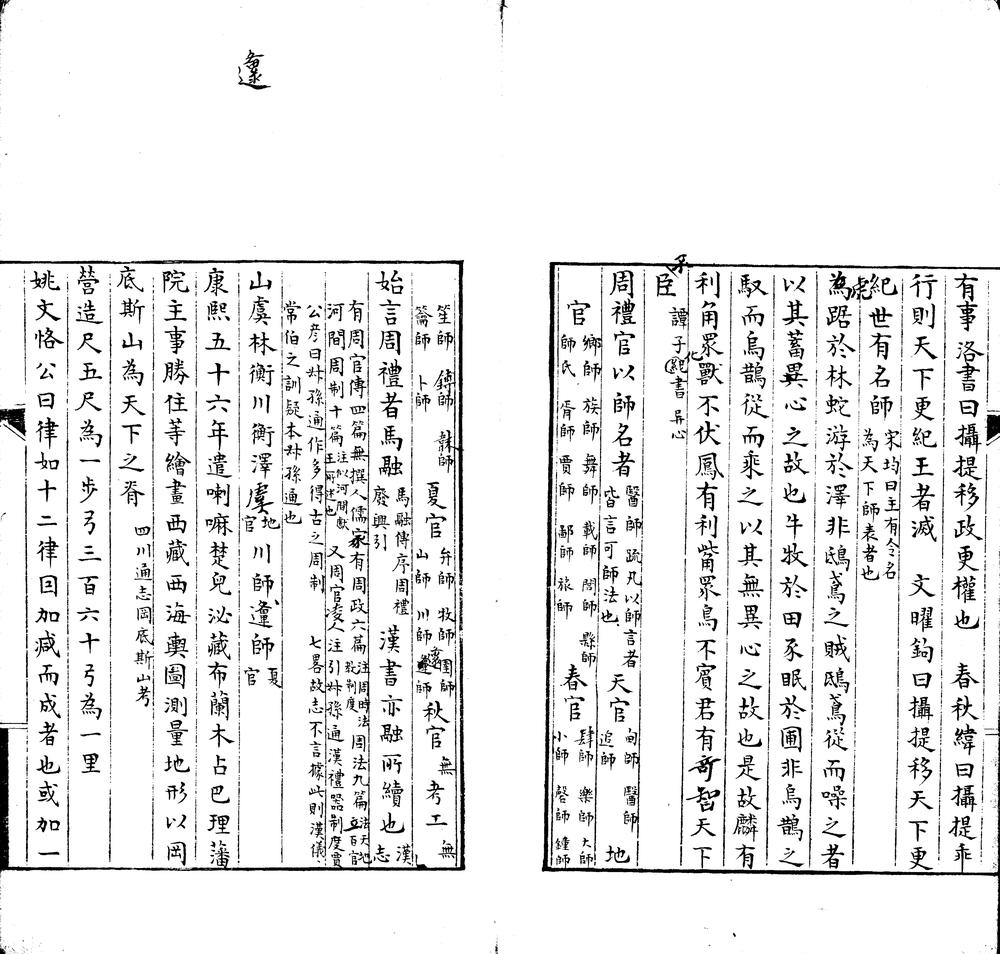 有事洛書曰攝提移政更權也　春秋緯曰攝提乖
行則天下更紀王者滅　文曜鈎曰攝提移天下更
紀世有名師　宋均曰主有令名為天下師表者也
虎為踞於林蛇游於澤非鴟鳶之賊鴟鳶從而噪之者
以其蓄異心之故也牛牧於田豕眠於圃非烏鵲之
馭而烏鵲從而乘之以其無異心之故也是故麟有
利角眾獸不伏鳳有利觜眾鳥不賓君有奇智天下
采
臣　譚子化書異心
周禮官以師名者　醫師疏凡以師言者皆言可師法也　天官　甸師　醫師　追師　地
官　鄉師　族師　舞師　載師　閭師　縣師　師氏　胥師　賈師　鄙師　旅師　春官　肆師　樂師　大師　小師　磬師　鍾師
笙師　鎛師　韎師　籥師　卜師　夏官　弁師　牧師　圉師　山師　川師　邍師　秋官　無　考工　無
始言周禮者馬融　馬融傳序周禮廢興引　漢書亦融所續也　漢志
有周官傳四篇無撰人儒家有周政六篇　注周時法教制度　周法九篇　法天地立百官
河間周制十篇　注似河間獻王所述也　又周官凌人注引叔孫通漢禮器制度賈
公彥曰叔孫通作多得古之周制　七畧故志不言據此則漢儀
常伯之訓疑本叔孫通也
山虞林衡川衡澤虞　地官　川師邍師　夏官
邍
康熙五十六年遣喇嘛楚兒沁藏布蘭木占巴理藩
院主事勝住等繪畫西藏西海輿圖測量地形以岡
底斯山為天下之脊　四川通志岡底斯山考
營造尺五尺為一步弓三百六十弓為一里
姚文恪公曰律如十二律因加减而成者也或加一